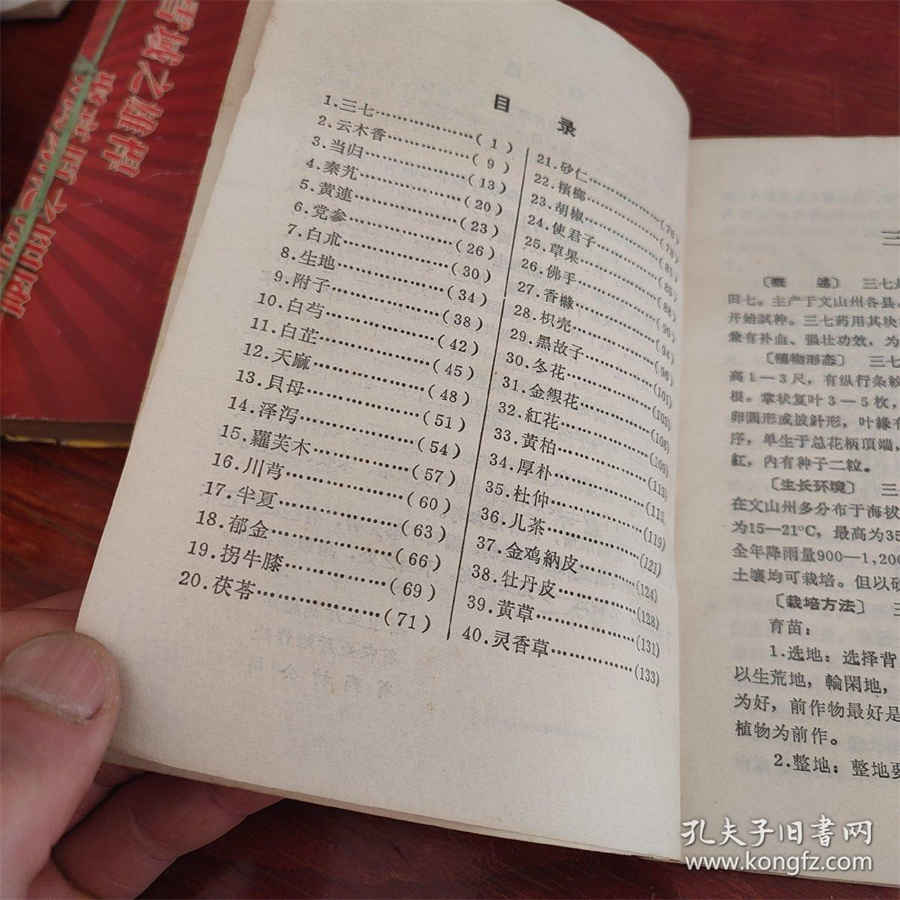 目 录
1.三七………………( 1 )
2.云木香………………( 9 )
3.当归………………(13)
4.秦艽………………(20)
5.黄連………………(23)
6.党参………………(26)
7.白朮………………(30)
8.生地………………(34)
9.附子………………(38)
10.白芍………………(42)
11.白芷………………(45)
12.天麻………………(48)
13.貝母………………(51)
14.泽泻………………(54)
15.蘿芙木………………(57)
16.川芎………………(60)
17.半夏………………(63)
18.郁金………………(66)
19.拐牛膝………………(69)
20.茯苓………………(71)
21.砂仁………………
22.槟榔………………
23.胡椒………………
24.使君子………………
25.草果………………
26.佛手………………
27.香橼………………
28.枳壳………………
29.黑故子………………
30.冬花………………(101)
31.金銀花………………
32.紅花………………
33.黄柏………………
34.厚朴………………
35.杜仲………………
36.儿茶………………(119)
37.金鸡納皮………………(121)
38.牡丹皮………………(124)
39.黄草………………(128)
40.灵香草………………(131)
(133)
三
〔概 述〕 三七是
田七。主产于文山州各县，
开始試种。三七药用其块
兼有补血、强壮功效，为
〔植物形态〕 三七
高1—3尺，有纵行条紋
根。掌状复叶3—5枚，
卵圆形或披針形，叶緣有
序，单生于总花柄頂端，
紅，内有种子二粒。
〔生长环境〕 三
在文山州多分布于海拔
为15—21°C，最高为35
全年降雨量900—1,200
土壤均可栽培。但以砂
〔栽培方法〕 三
育苗：
1.选地：选择背
以生荒地，輪閑地，
为好，前作物最好是
植物为前作。
2.整地：整地要
孔夫子旧書网
www.kongfz.com